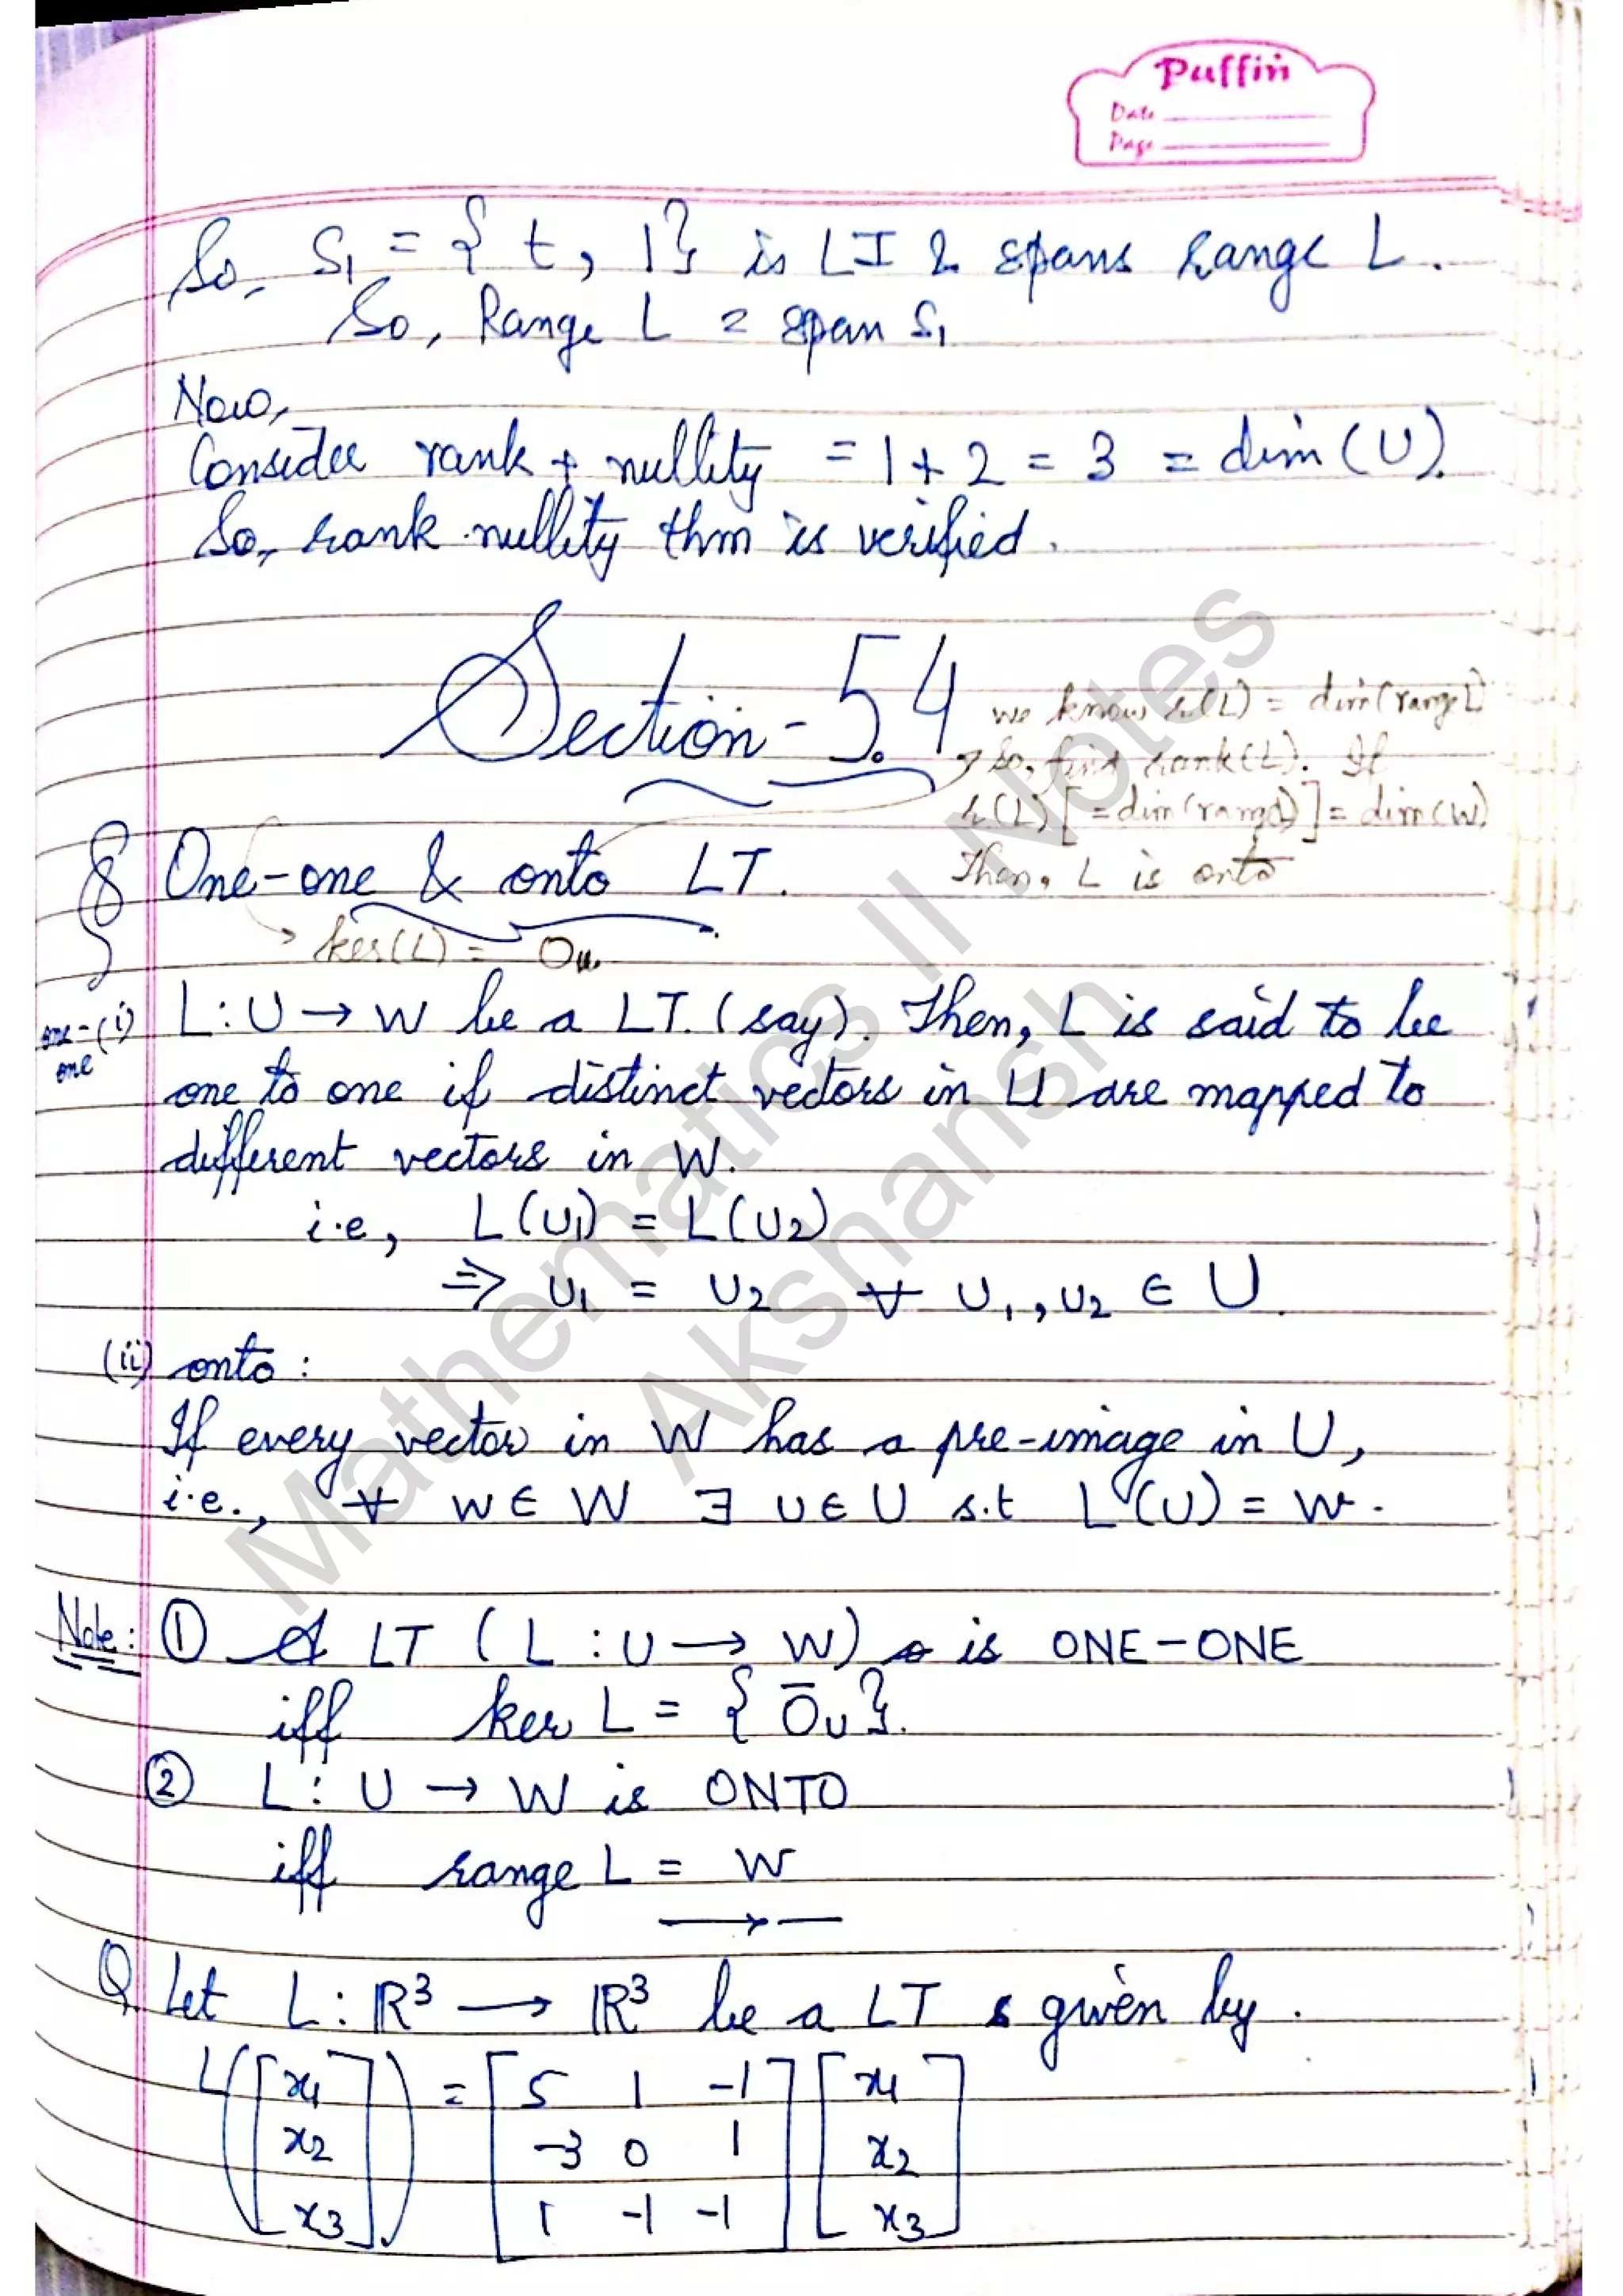 Puffin
Date
Page
So, S₁ = { t, 1} is LI & spans range L.
So, Range L = span S₁
Now,
Consider rank + nullity = 1 + 2 = 3 = dim (U).
So, rank nullity thm is verified.
Section - 5.4
we know r(L) = dim(range L)
→ So, find rank(L). If
r(L) [= dim(range)] = dim(W)
Then, L is onto
§ One-one & onto LT.
→ ker(L) = 0u
one-one (i) L : U → W be a LT. (say). Then, L is said to be
one to one if distinct vectors in U are mapped to
different vectors in W.
i.e, L(u₁) = L(u₂)
⇒ u₁ = u₂ ∀ u₁, u₂ ∈ U.
(ii) onto :
If every vector in W has a pre-image in U,
i.e., ∀ w ∈ W ∃ u ∈ U s.t L(u) = w.
Note: ① A LT (L : U → W) is ONE-ONE
iff ker L = { 0̄ᴜ}.
② L : U → W is ONTO
iff range L = W
Q Let L : ℝ³ → ℝ³ be a LT given by.
L([x₁ x₂ x₃]) = [5 1 -1 [x₁
-3 0 1 x₂
1 -1 -1] x₃]
Mathematics II Notes
Akshansh